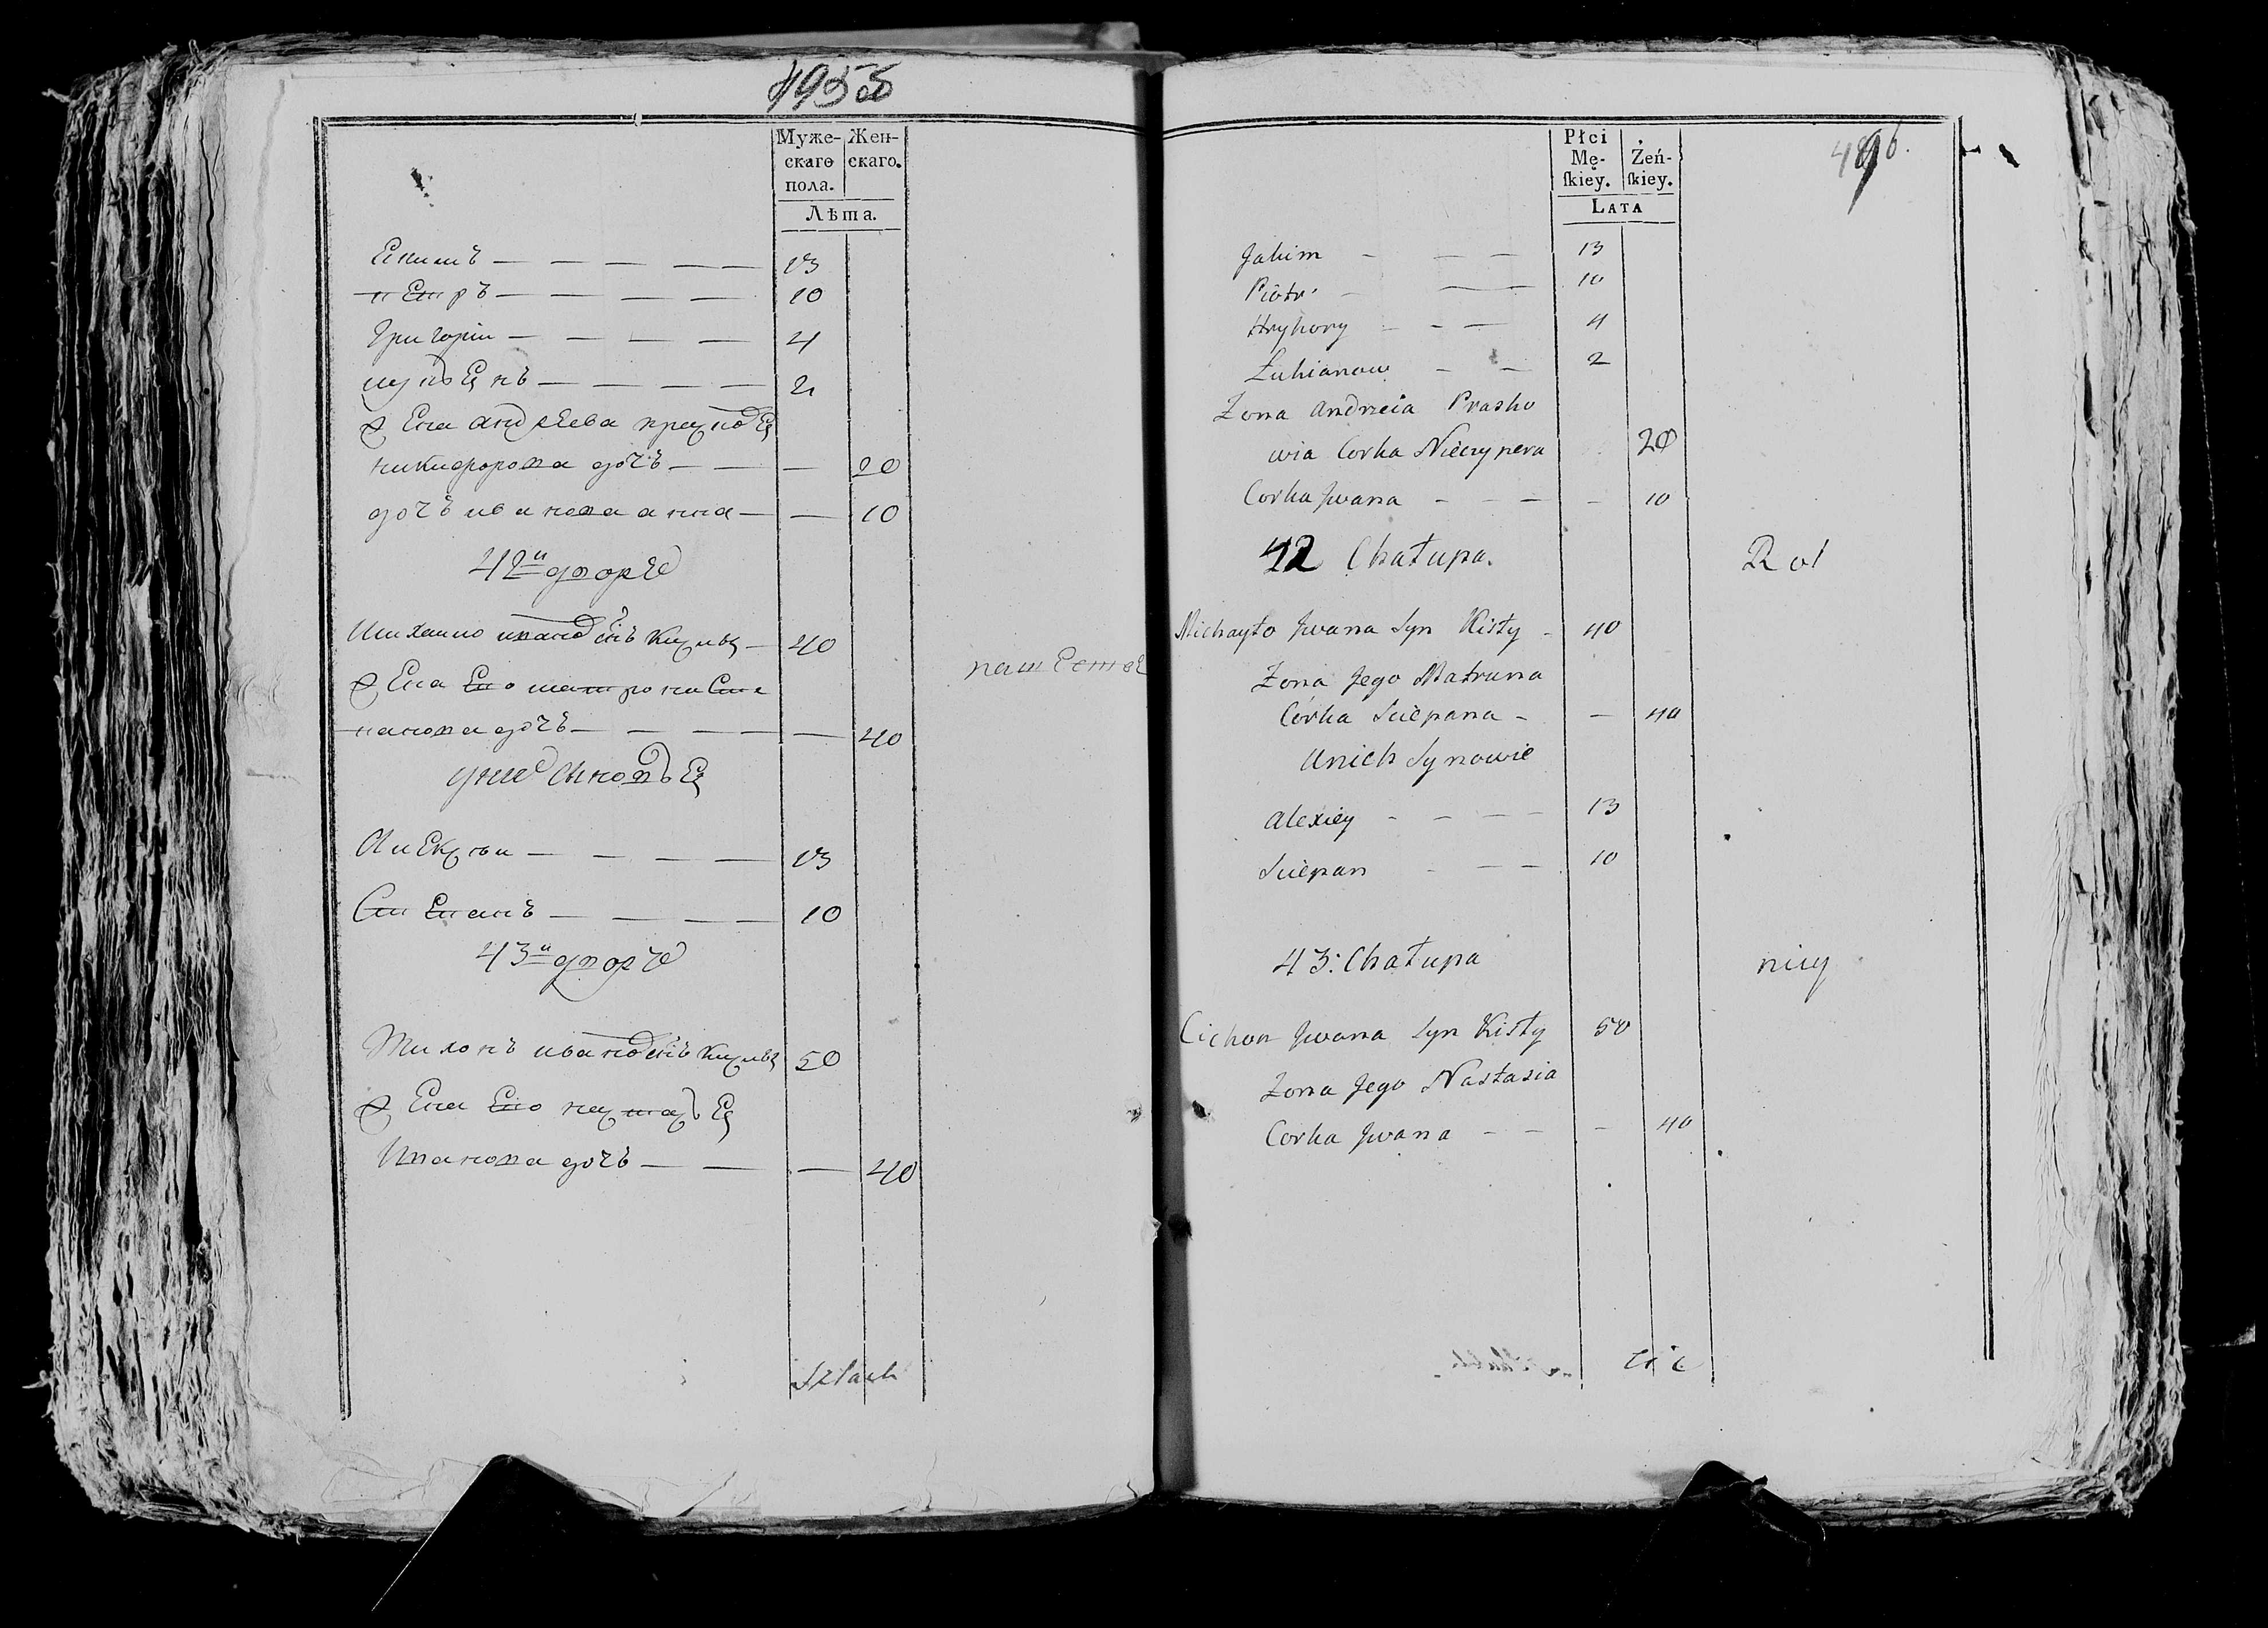 Муже-
скаго
пола.
Жен-
скаго.
Лѣта.
Еким 13
петръ 10
Григории 4
лукьенъ 2
жена андреева прасковья
никифорова дочъ 20
дочъ иванова анна 10
42й дворе
Михаило иванов снъ Кислы 40
жена ево матрона сте
панова дочъ 40
уних сыновья
Алексеи 13
Степанъ 10
43й дворе
Тихонъ иванов снъ Кислы 50
жена ево настасья
Иванова дочъ 40
Szlach
Płci
Mę-
ſkiey.
Żeń-
ſkiey.
LATA
496.
Jakim 13
Piotr 10
Hryhory 4
Łukianow 2
Zona Andrzeia Prasko
wia Corka Nieczypera 20
Corka Jwana 10
42 Chałupa. Rol
Michayło Jwana Syn Kisły 40
Zona Jego Matruna
Córka Sciepana 40
Unich Synowie
Alexiey 13
Sciepan 10
43: Chałupa nicy
Cichon Jwana Syn Kisły 50
Zona Jego Nastasia
Corka Jwana 40